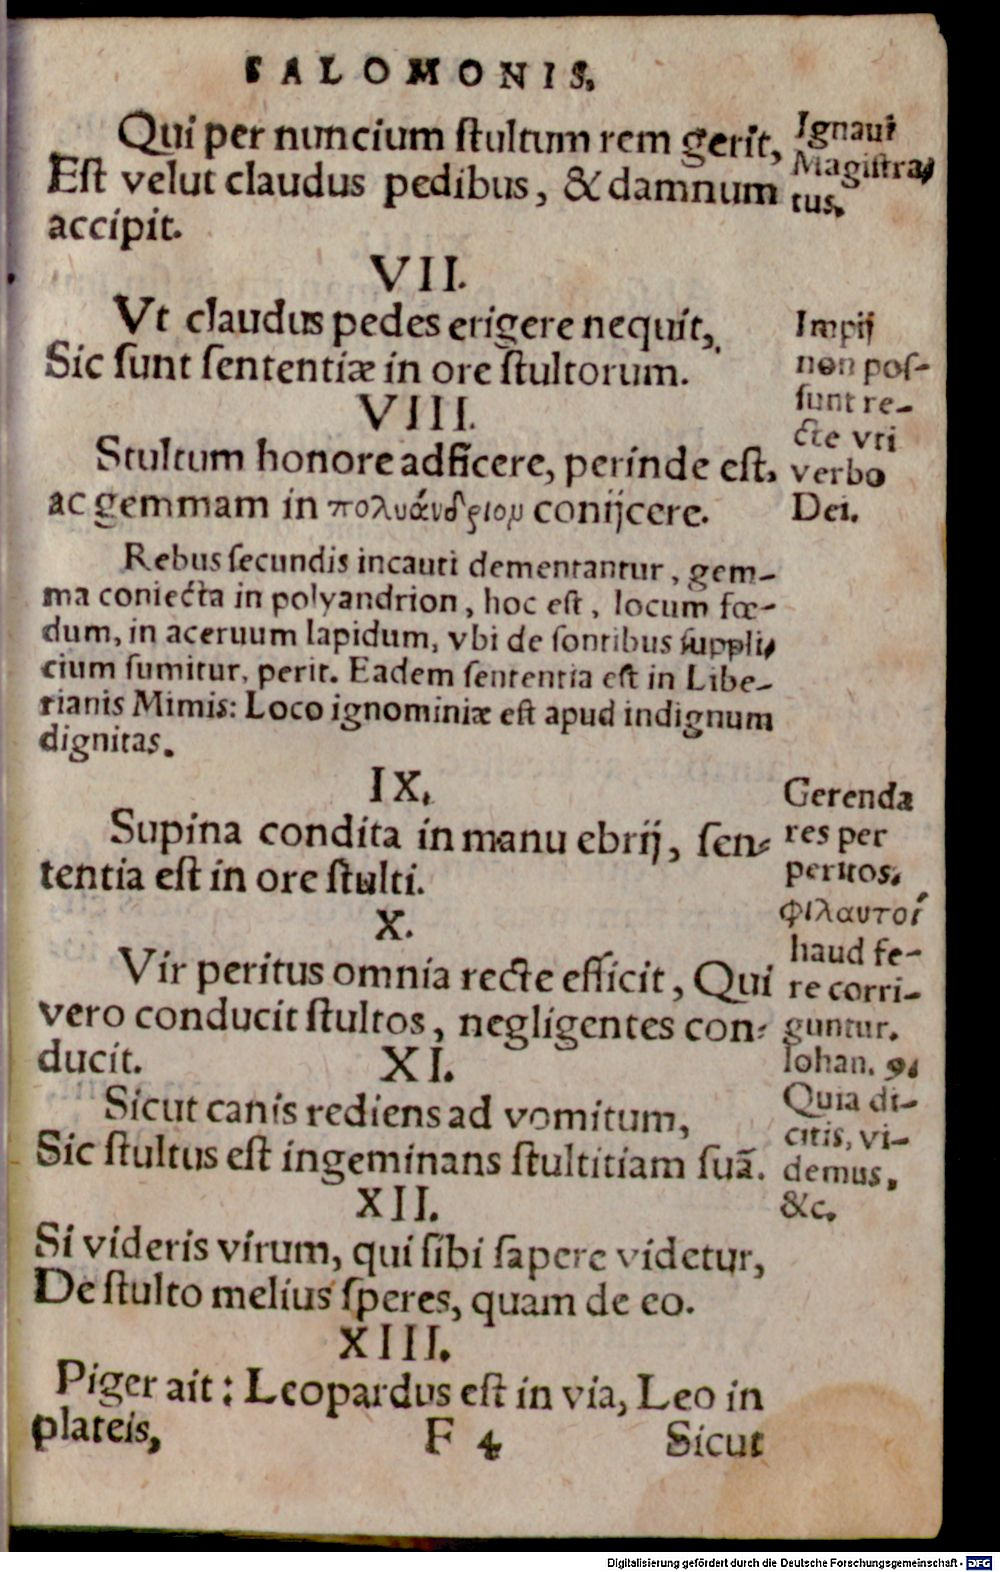 SALOMONIS.
Qui per nuncium ſtultum rem gerit,
Eſt velut claudus pedibus, & damnum
accipit.
Ignaui
Magiſtra-
tus.
VII.
Vt claudus pedes erigere nequit,
Sic ſunt ſententiæ in ore ſtultorum.
Impij
non poſ-
ſunt re-
cte vti
verbo
Dei.
VIII.
Stultum honore adficere, perinde eſt,
ac gemmam in πολυάνδριον conijcere.
Rebus ſecundis incauti dementantur, gem-
ma coniecta in polyandrion, hoc eſt, locum fœ-
dum, in aceruum lapidum, vbi de ſontibus ſuppli-
cium ſumitur, perit. Eadem ſententia eſt in Libe-
rianis Mimis: Loco ignominiæ eſt apud indignum
dignitas.
IX.
Supina condita in manu ebrij, ſen-
tentia eſt in ore ſtulti.
Gerenda
res per
peritos.
X.
Vir peritus omnia recte efficit, Qui
vero conducit ſtultos, negligentes con-
ducit.
Φιλαυτοί
haud fe-
re corri-
guntur.
Iohan. 9.
Quia di-
citis, vi-
demus,
&c.
XI.
Sicut canis rediens ad vomitum,
Sic ſtultus eſt ingeminans ſtultitiam ſuã.
XII.
Si videris virum, qui ſibi ſapere videtur,
De ſtulto melius ſperes, quam de eo.
XIII.
Piger ait: Leopardus eſt in via, Leo in
plateis,
F 4
Sicut
Digitalisierung gefördert durch die Deutsche Forschungsgemeinschaft - DFG